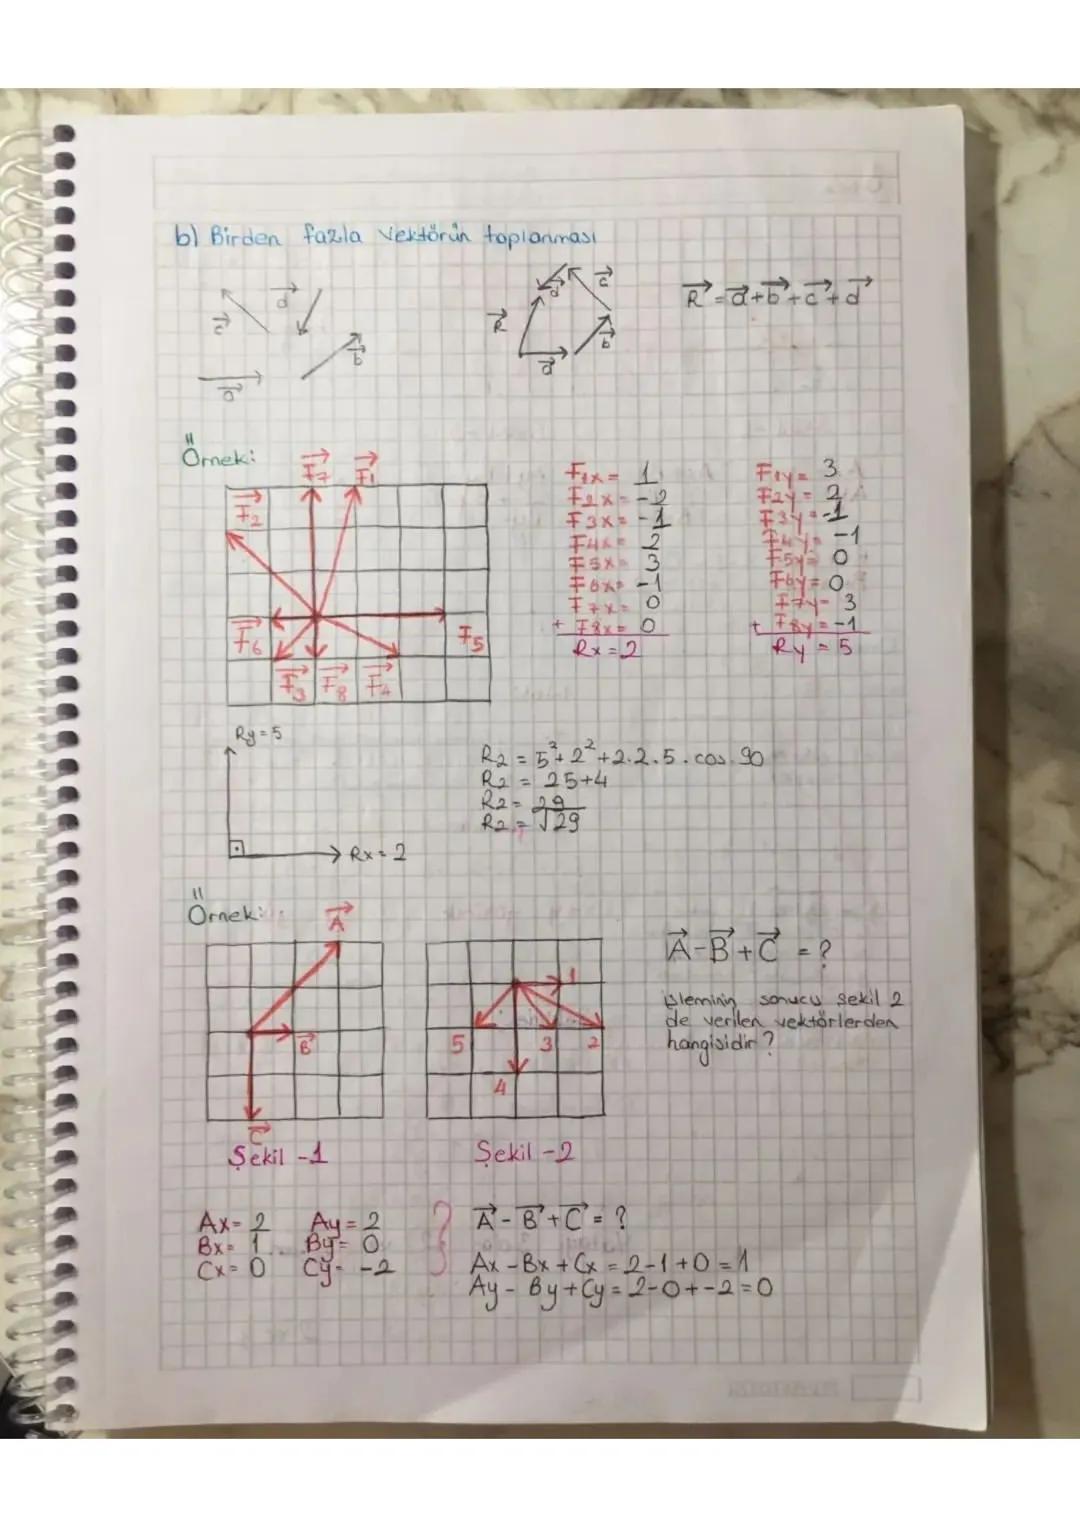 b) Birden fazla vektörün toplanması
c d
b
a
R d c
a b
R = a+b+c+d
Örnek:
F7 F1
F2
F6 F5
F3 F8 F4
F1x = 1
F2x = -2
F3x = -1
F4x = 2
F5x = 3
F6x = -1
F7x = 0
+ F8x = 0
Rx = 2
F1y = 3
F2y = 2
F3y = -1
F4y = -1
F5y = 0
F6y = 0
F7y = 3
+ F8y = -1
Ry = 5
Ry = 5
Rx = 2
R2 = 5²+2²+2.2.5.cos 90
R2 = 25+4
R2 = 29
R2 = √29
Örnek:
A
B
C
Şekil -1
1
5 3 2
4
Şekil -2
A-B+C = ?
işleminin sonucu şekil 2
de verilen vektörlerden
hangisidir?
Ax= 2 Ay= 2
Bx= 1 By= 0
Cx= 0 Cy= -2
A-B+C = ?
Ax - Bx + Cx = 2-1+0 = 1
Ay - By + Cy = 2-0+-2 = 0